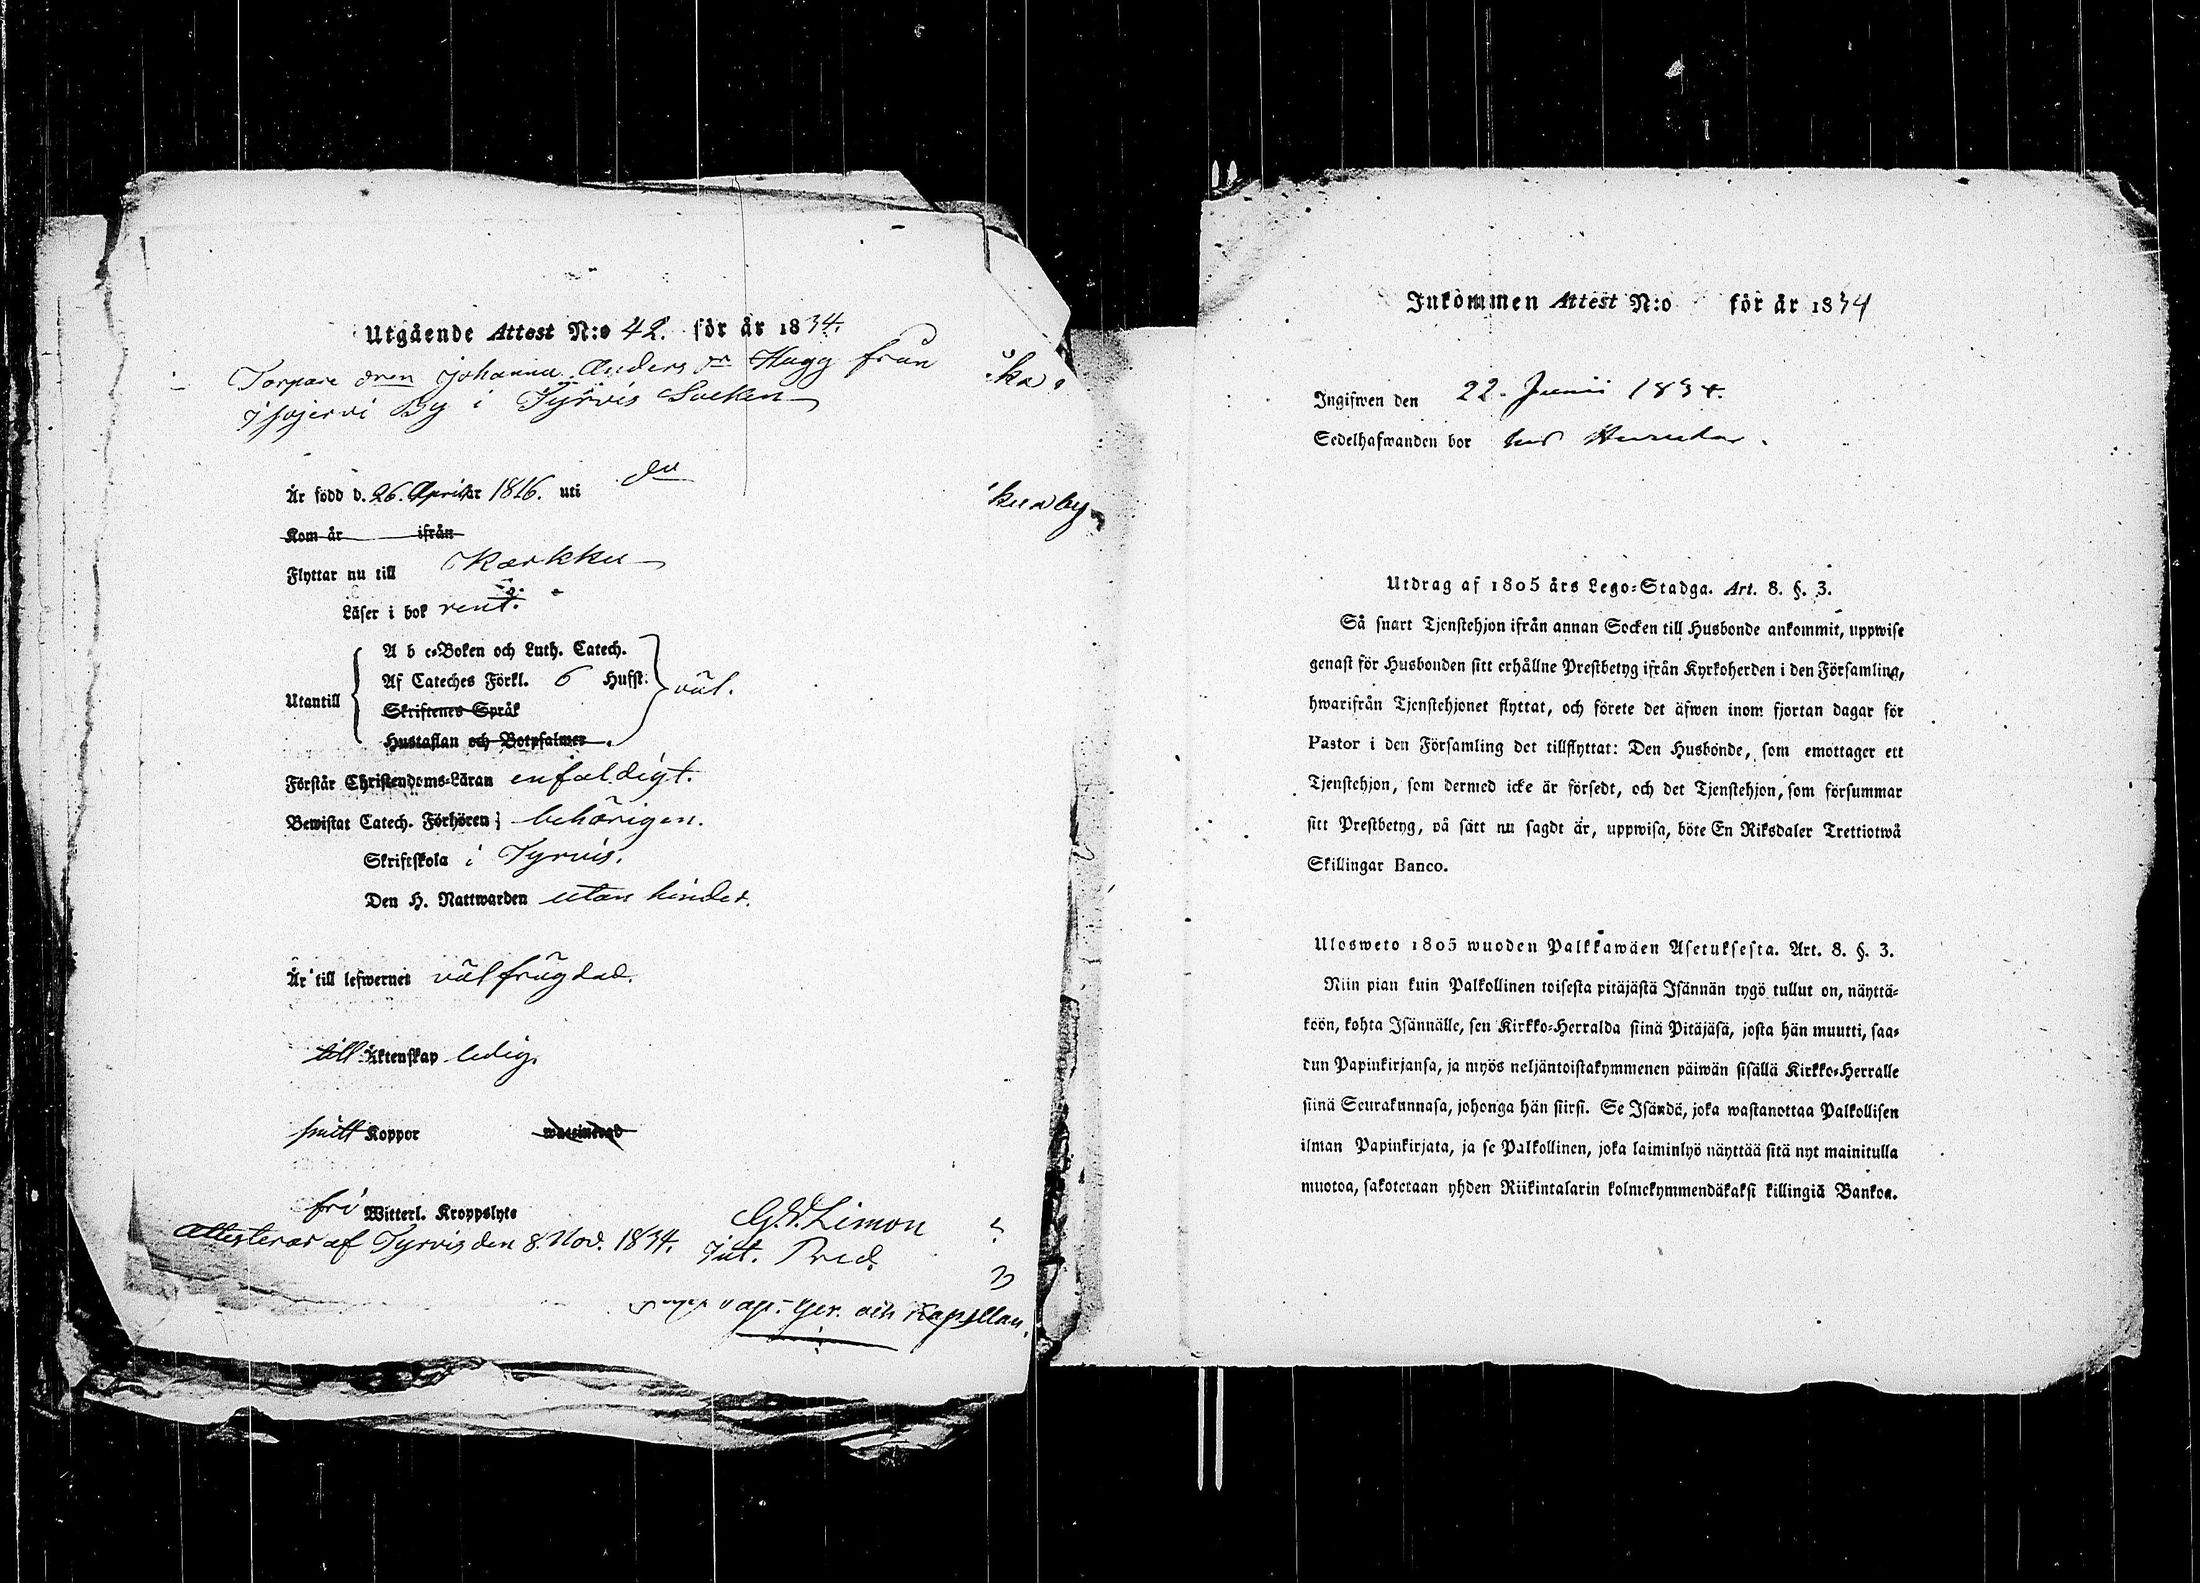 Utgående Attest N:o 42. för år 1834.
Torpare dren Johannes Anders sn Hugg från
Jsojervi By i Tyrvis Socken
Är född d. 26. April år 1816. uti do
Kom år ifrån
Flyttar nu till Karkku
Läser i bok rent.
A b c-Boken och Luth. Catech.
Utantill Af Cateches Förkl. 6 Hufst. väl.
Skriftenes Språk
Hustaflan och Botpsalmer.
Förstår Christendoms-Läran enfaldigt.
Bewistat Catech. Förhören behörigen.
Skriftskola i Tyrvis.
Den H. Nattwarden utan hinder.
Är till lefwernet välfrägdad.
till Äktenskap ledig.
haft Koppor waccinerad
fri Witterl. Kroppslyte
Attesterar af Tyrvis den 8. Nov. 1834. G. W. Limon
Int. Pred.
adj. och Kapellan.
Inkommen Attest N:o för år 1834
Ingifwen den 22. Junii 1834.
Sedelhafwanden bor hos
Utdrag af 1805 års Lego-Stadga. Art. 8. §. 3.
Så snart Tjenstehjon ifrån annan Socken till Husbonde ankommit, uppwise
genast för Husbonden sitt erhållne Prestbetyg ifrån Kyrkoherden i den Församling,
hwarifrån Tjenstehjonet flyttat, och förete det äfwen inom fjortan dagar för
Pastor i den Församling det tillflyttat: Den Husbonde, som emottager ett
Tjenstehjon, som dermed icke är försedt, och det Tjenstehjon, som försummar
sitt Prestbetyg, på sätt nu sagdt är, uppwisa, böte En Riksdaler Trettiotwå
Skillingar Banco.
Ulosweto 1805 wuoden Palkkawäen Asetuksesta. Art. 8. §. 3.
Niin pian kuin Palkollinen toisesta pitäjästä Isännän tygö tullut on, näyttä-
köön, kohta Isännälle, sen Kirkko-Herralda siinä Pitäjäsä, josta hän muutti, saa-
dun Papinkirjansa, ja myös neljäntoistakymmenen päiwän sisällä Kirkko-Herralle
siinä Seurakunnasa, johonga hän siirsi. Se Isändä, joka wastanottaa Palkollisen
ilman Papinkirjata, ja se Palkollinen, joka laiminlyö näyttää sitä nyt mainitulla
muotoa, sakotetaan yhden Riikintalarin kolmekymmendäkaksi killingiä Bankoa.